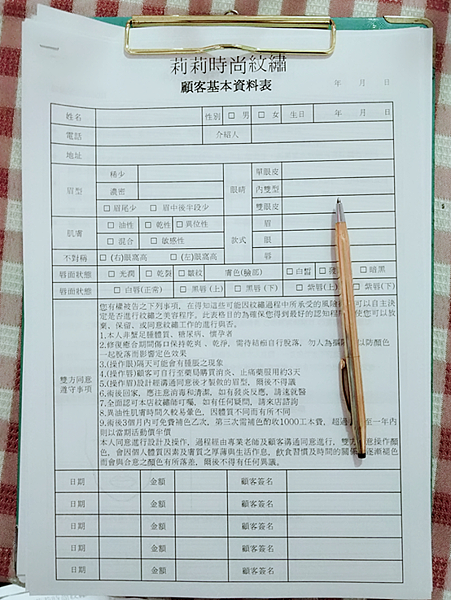 莉莉時尚紋繡
顧客基本資料表
年 月 日
姓名 性別 □ 男 □ 女 生日 年 月 日
電話 介紹人
地址
眉型 稀少 眼睛 單眼皮
濃密 內雙型
□ 眉尾少 □ 眉中後半段少 雙眼皮
肌膚 □ 油性 □ 乾性 □ 異位性 款式 眉
□ 混合 □ 敏感性 眼
不對稱 □ (右)眼窩高 □ (左)眼窩高 唇
唇面狀態 □ 光潤 □ 乾裂 □ 皺紋 膚色(臉部) □ 白皙 □ □ 暗黑
唇面狀態 □ 白唇(正常) □ 黑唇(上) □ 黑唇(下) □ 紫唇(上) □ 紫唇(下)
雙方同意
遵守事項
您有權被告之下列事項，在得知這些可能因紋繡過程中所承受的風險 可以自主決
定是否進行紋繡之美容程序，此表格目的為確保您得到最好的認知程 使您可以放
棄、保留、或同意紋繡工作的進行與否。
1.本人非蟹足腫體質、糖尿病、懷孕者
2.修復癒合期間傷口保持乾爽、乾淨，需待結痂自行脫落，勿人為摳 以防顏色
一起脫落而影響定色效果
3.(操作眼)隔天可能會有腫脹之現象
4.(操作唇)顧客可自行至藥局購買消炎、止痛藥服用約3天
5.(操作眉)設計經溝通同意後才製做的眉型，爾後不得議
6.術後回家，應注意消毒和清潔，如有發炎反應，請速就醫
7.全面認可本店紋繡師可囑，如有任何疑問，請來店諮詢
8.異油性肌膚時間久較易暈色，因體質不同而有所不同
9.術後3個月內可免費補色乙次，第三次需補色酌收1000工本費，超過 至一年內
則以當期活動價半價
本人同意進行設計及操作，過程經由專業老師及顧客溝通同意進行，雙方 意操作顏
色，會因個人體質因素及膚質之厚薄與生活作息，飲食習慣及時間的關係 逐漸褪色
而會與合意之顏色有所落差，爾後不得有任何異議。
日期 金額 顧客簽名
日期 金額 顧客簽名
日期 金額 顧客簽名
日期 金額 顧客簽名
日期 金額 顧客簽名